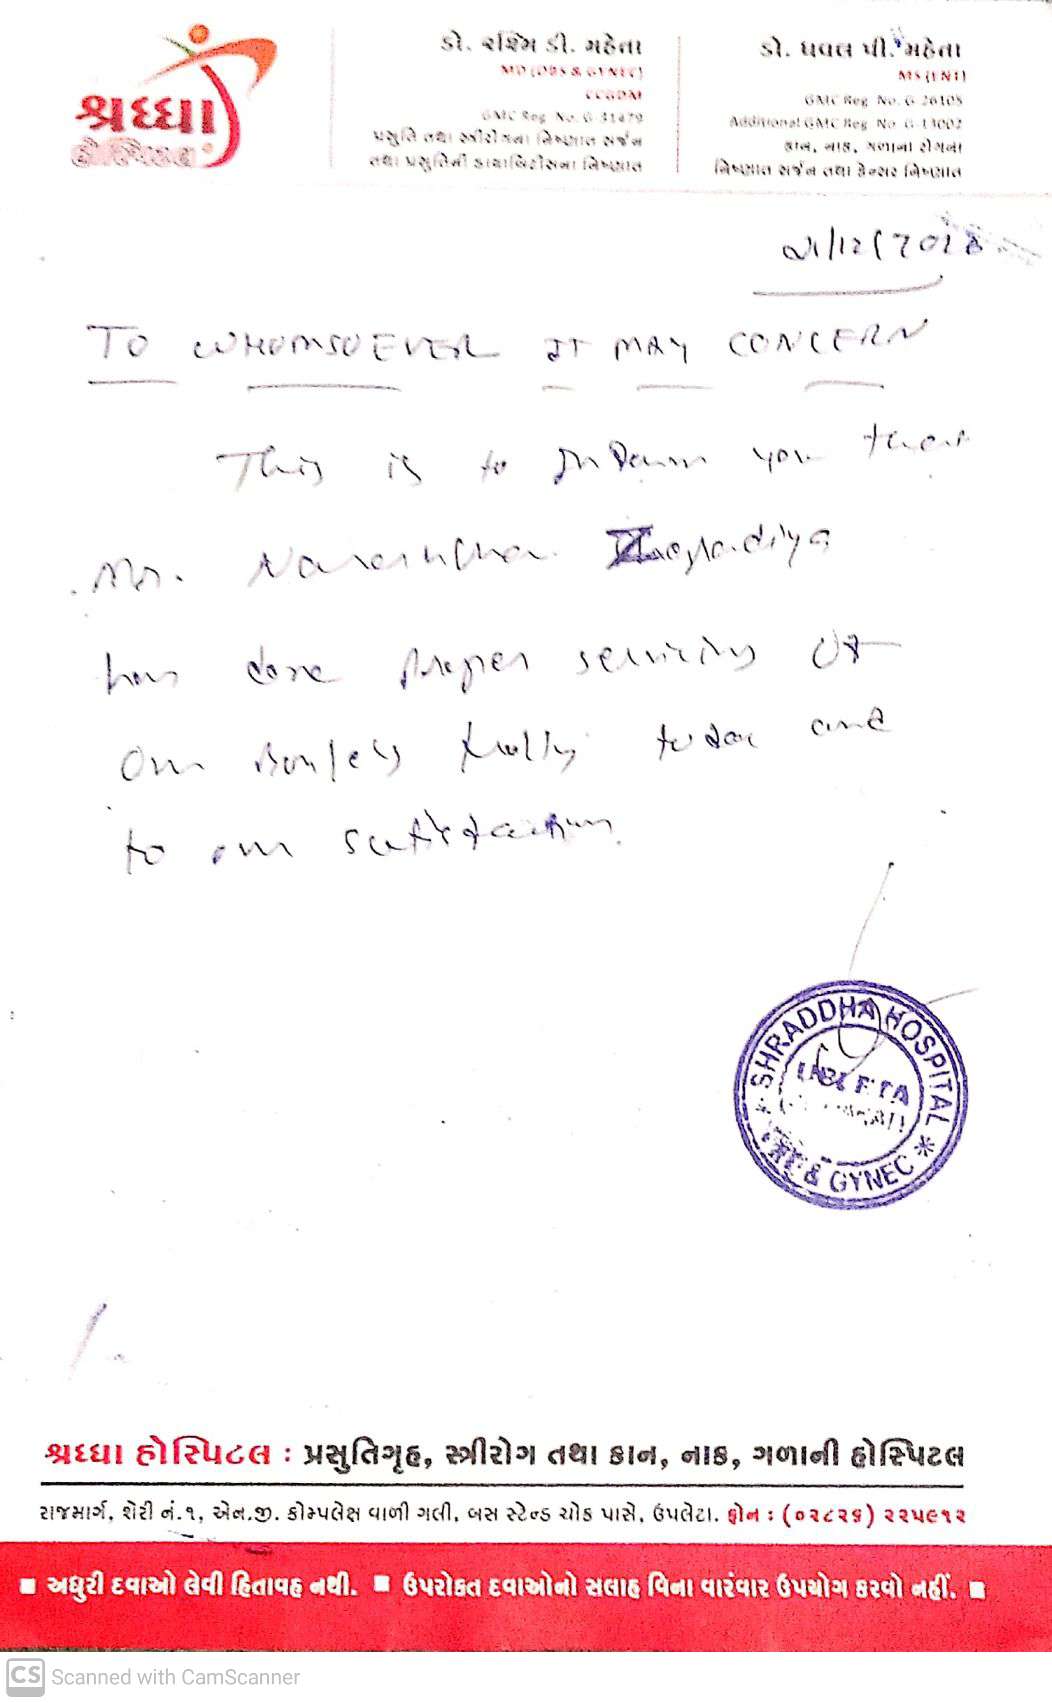 શ્રધ્ધા
હોસ્પિટલ
ડો. રશ્મિ ડી. મહેતા
MD (OBS & GYNEC)
CCGDM
GMC Reg. No. G-31479
પ્રસુતિ તથા સ્ત્રીરોગના નિષ્ણાત સર્જન
તથા પ્રસુતિની ડાયાબિટીસના નિષ્ણાત
ડો. ધવલ પી. મહેતા
MS (ENT)
GMC Reg. No. G-26105
Additional GMC Reg. No. G-13002
કાન, નાક, ગળાના રોગના
નિષ્ણાત સર્જન તથા કેન્સર નિષ્ણાત
TO WHOMSOEVER IT MAY CONCERN
This is to Inform you that
Mr.
has done proper servicing of
our fully today and
to our satisfaction.
SHRADDHA HOSPITAL
UPLETA
& GYNEC
શ્રધ્ધા હોસ્પિટલ : પ્રસુતિગૃહ, સ્ત્રીરોગ તથા કાન, નાક, ગળાની હોસ્પિટલ
રાજમાર્ગ, શેરી નં.૧, એન.જી. કોમ્પલેક્ષ વાળી ગલી, બસ સ્ટેન્ડ ચોક પાસે, ઉપલેટા. ફોન : (૦૨૮૨૬) ૨૨૫૯૧૨
■ અધુરી દવાઓ લેવી હિતાવહ નથી. ■ ઉપરોક્ત દવાઓનો સલાહ વિના વારંવાર ઉપયોગ કરવો નહીં. ■
CS Scanned with CamScanner